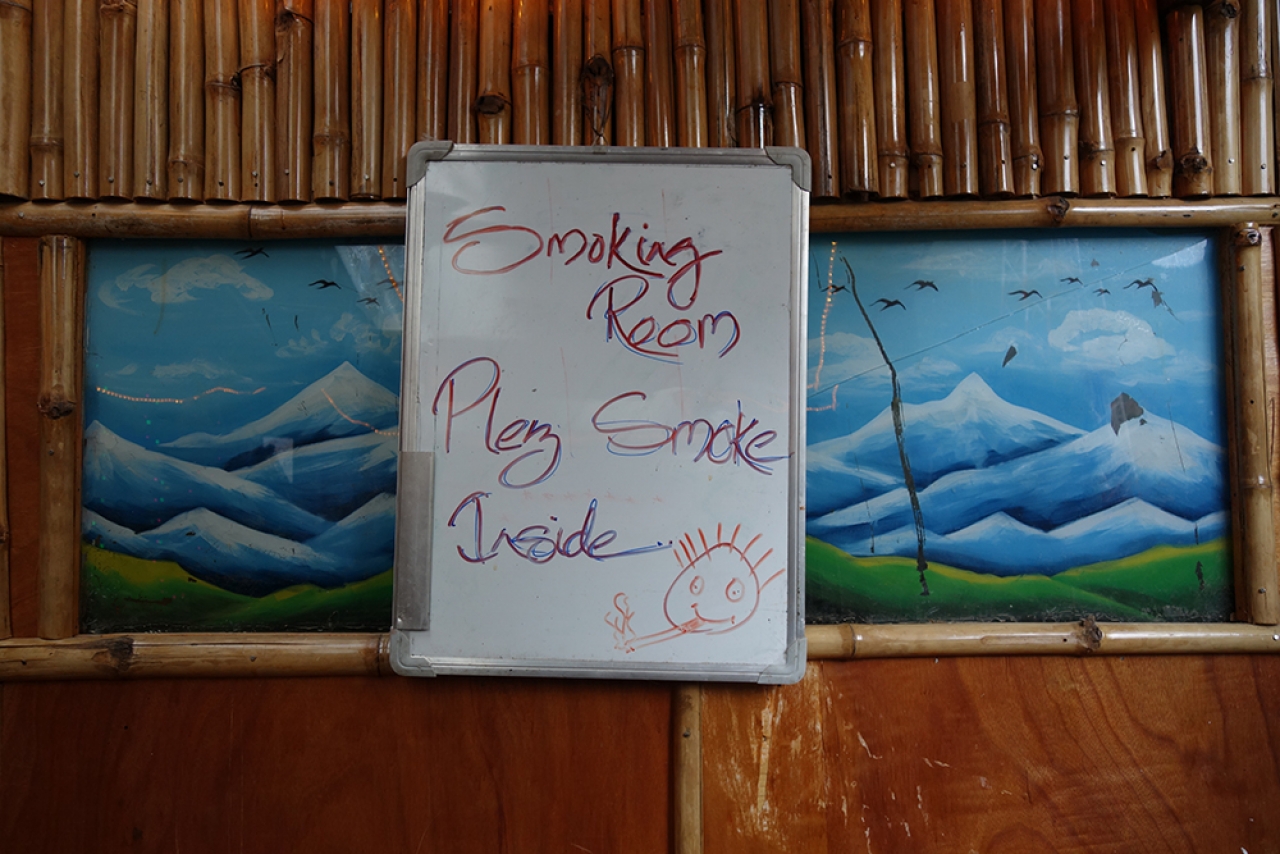 Smoking
Room
Plez Smoke
Inside..